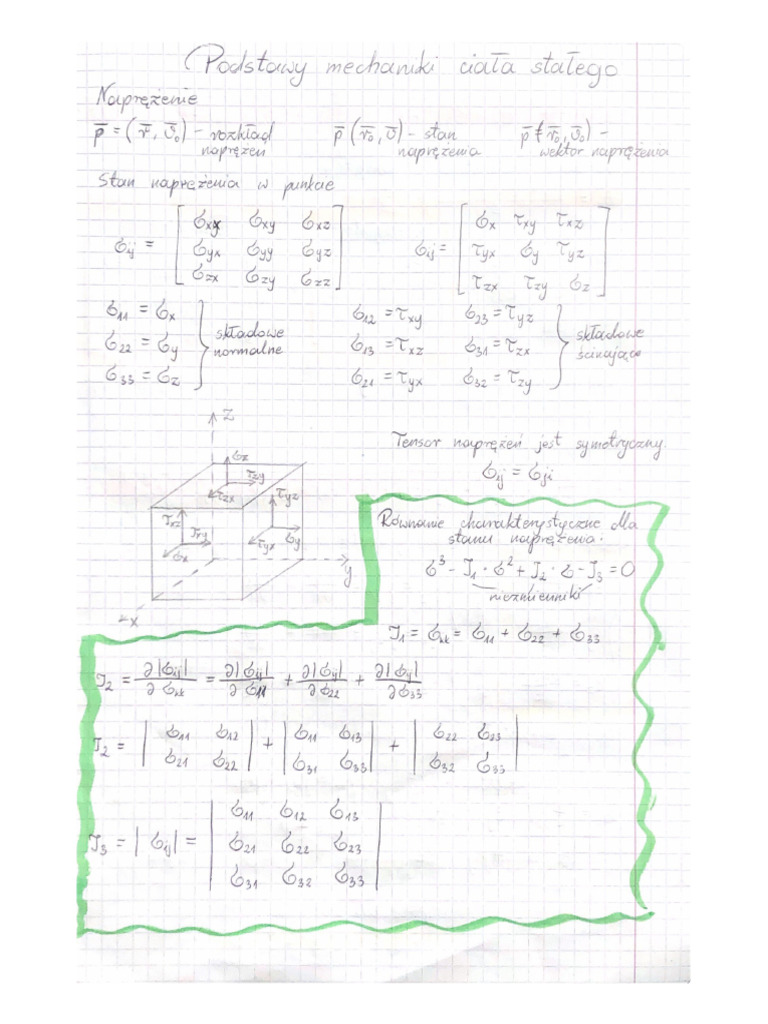 Podstawy mechaniki ciała stałego
Naprężenie
p̄ = (r̄, ῡ₀) – rozkład naprężeń
p̄ (r̄₀, ῡ) – stan naprężenia
p̄ (r̄₀, ῡ₀) – wektor naprężenia
Stan naprężenia w punkcie
σij = [ σxx σxy σxz
σyx σyy σyz
σzx σzy σzz ]
σij = [ σx τxy τxz
τyx σy τyz
τzx τzy σz ]
σ11 = σx
σ22 = σy
σ33 = σz
} składowe normalne
σ12 = τxy σ23 = τyz
σ13 = τxz σ31 = τzx
σ21 = τyx σ32 = τzy
} składowe ścinające
z
σz
τzy
τzx
τyz
τxz
τxy
σx
τyx
σy
y
x
Tensor naprężeń jest symetryczny.
σij = σji
Równanie charakterystyczne dla
stanu naprężenia:
σ³ – J₁ · σ² + J₂ · σ – J₃ = 0
niezmienniki
J₁ = σkk = σ11 + σ22 + σ33
J₂ = ∂|σij|/∂σkk = ∂|σij|/∂σ11 + ∂|σij|/∂σ22 + ∂|σij|/∂σ33
J₂ = | σ11 σ12 | + | σ11 σ13 | + | σ22 σ23 |
| σ21 σ22 | | σ31 σ33 | | σ32 σ33 |
J₃ = |σij| = | σ11 σ12 σ13 |
| σ21 σ22 σ23 |
| σ31 σ32 σ33 |